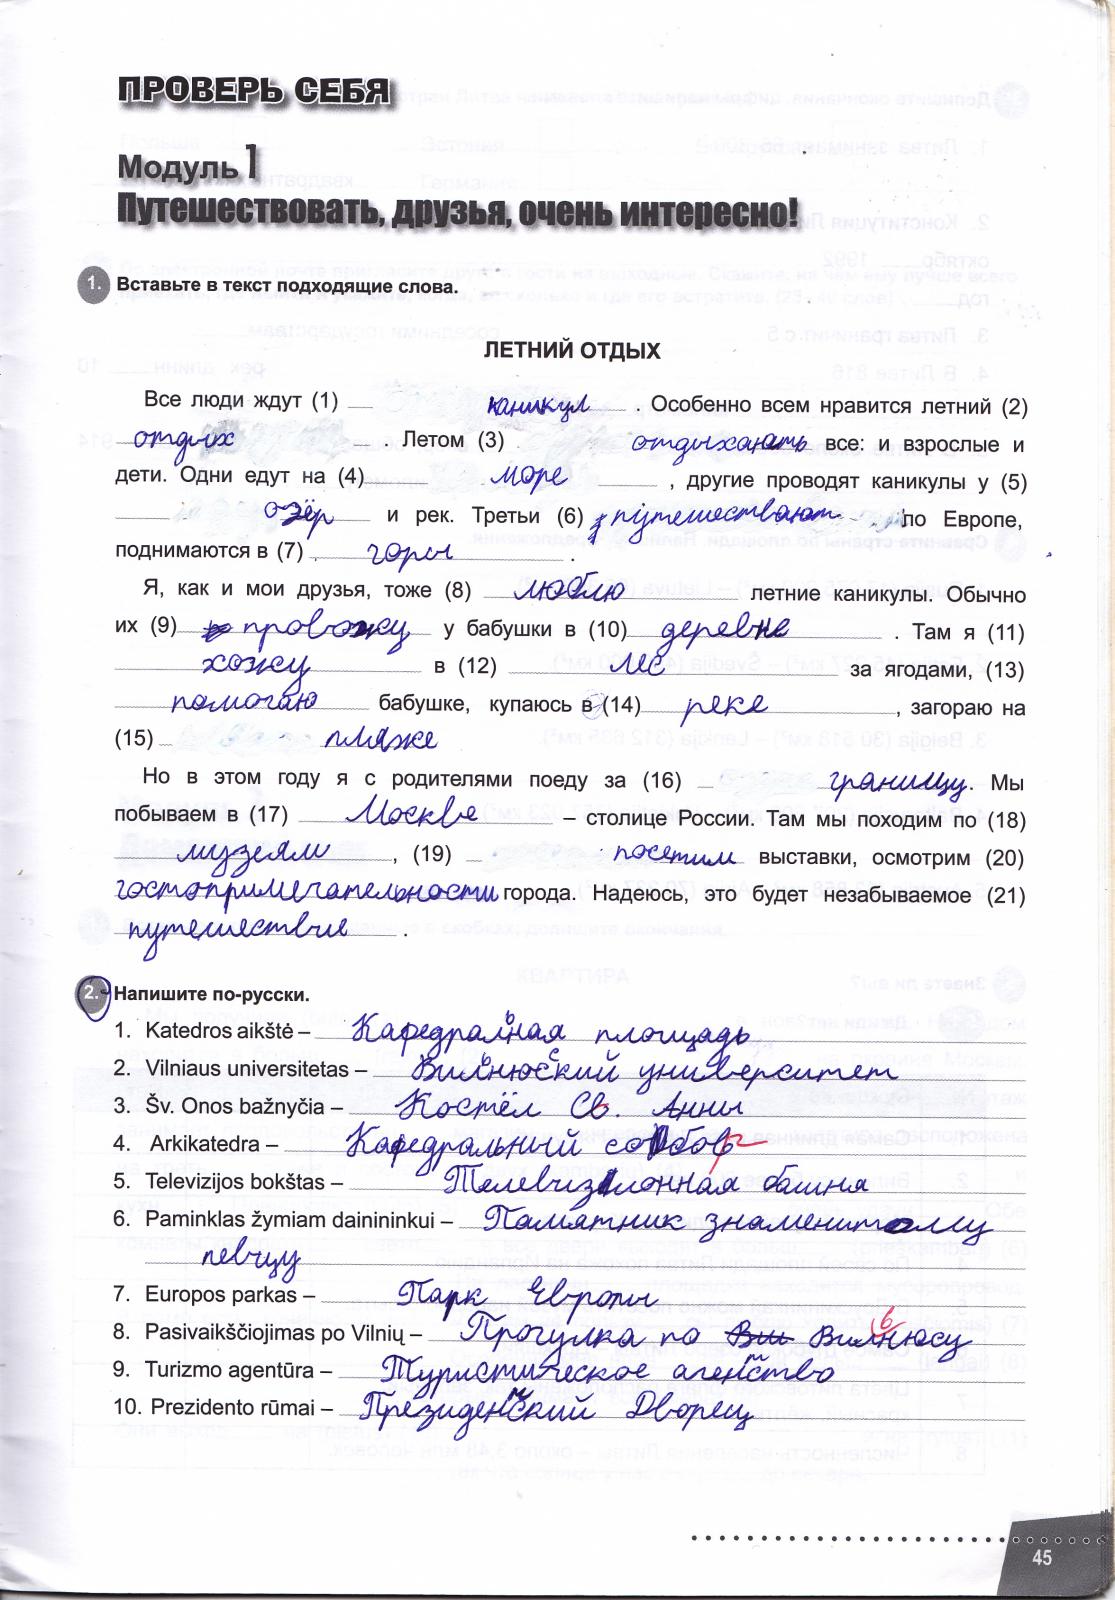 ПРОВЕРЬ СЕБЯ
Модуль 1
Путешествовать, друзья, очень интересно!
1. Вставьте в текст подходящие слова.
ЛЕТНИЙ ОТДЫХ
Все люди ждут (1) каникул . Особенно всем нравится летний (2)
отдых . Летом (3) отдыхають все: и взрослые и
дети. Одни едут на (4) море , другие проводят каникулы у (5)
озёр и рек. Третьи (6) путешествают по Европе,
поднимаются в (7) горы .
Я, как и мои друзья, тоже (8) люблю летние каникулы. Обычно
их (9) провожу у бабушки в (10) деревне . Там я (11)
хожу в (12) лес за ягодами, (13)
помогаю бабушке, купаюсь в (14) реке , загораю на
(15) пляже
Но в этом году я с родителями поеду за (16) границу. Мы
побываем в (17) Москве – столице России. Там мы походим по (18)
музеям , (19) посетим выставки, осмотрим (20)
достопримечательности города. Надеюсь, это будет незабываемое (21)
путешествие .
2. Напишите по-русски.
1. Katedros aikštė – Кафедральная площадь
2. Vilniaus universitetas – Вильнюсский университет
3. Šv. Onos bažnyčia – Костёл Св. Анны
4. Arkikatedra – Кафедральный собор
5. Televizijos bokštas – Телевизионная башня
6. Paminklas žymiam dainininkui – Памятник знаменитому
певцу
7. Europos parkas – Парк Европы
8. Pasivaikščiojimas po Vilnių – Прогулка по Вил Вильнюсу
9. Turizmo agentūra – Туристическое агентство
10. Prezidento rūmai – Президентский Дворец
45